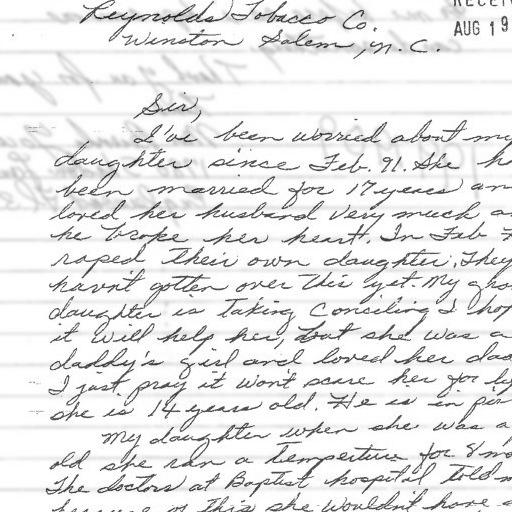 RECEIV
AUG 19
Reynolds Tobacco Co.
Winston Salem, N.C.
Sir,
I've been worried about my
daughter since Feb. 91. She ha
been married for 17 years an
loved her husband very much a
he broke her heart. In Feb
raped their own daughter. They
havn't gotten over this yet. My
daughter is taking Consiling I hop
it will help her, but she was a
daddy's girl and loved her dad
I just pray it won't scare her for
she is 14 years old. He is in
My daughter when she was a
old she ran a temperture for 8 mo
The doctors at Baptist hospital told m
because of this she wouldn't have